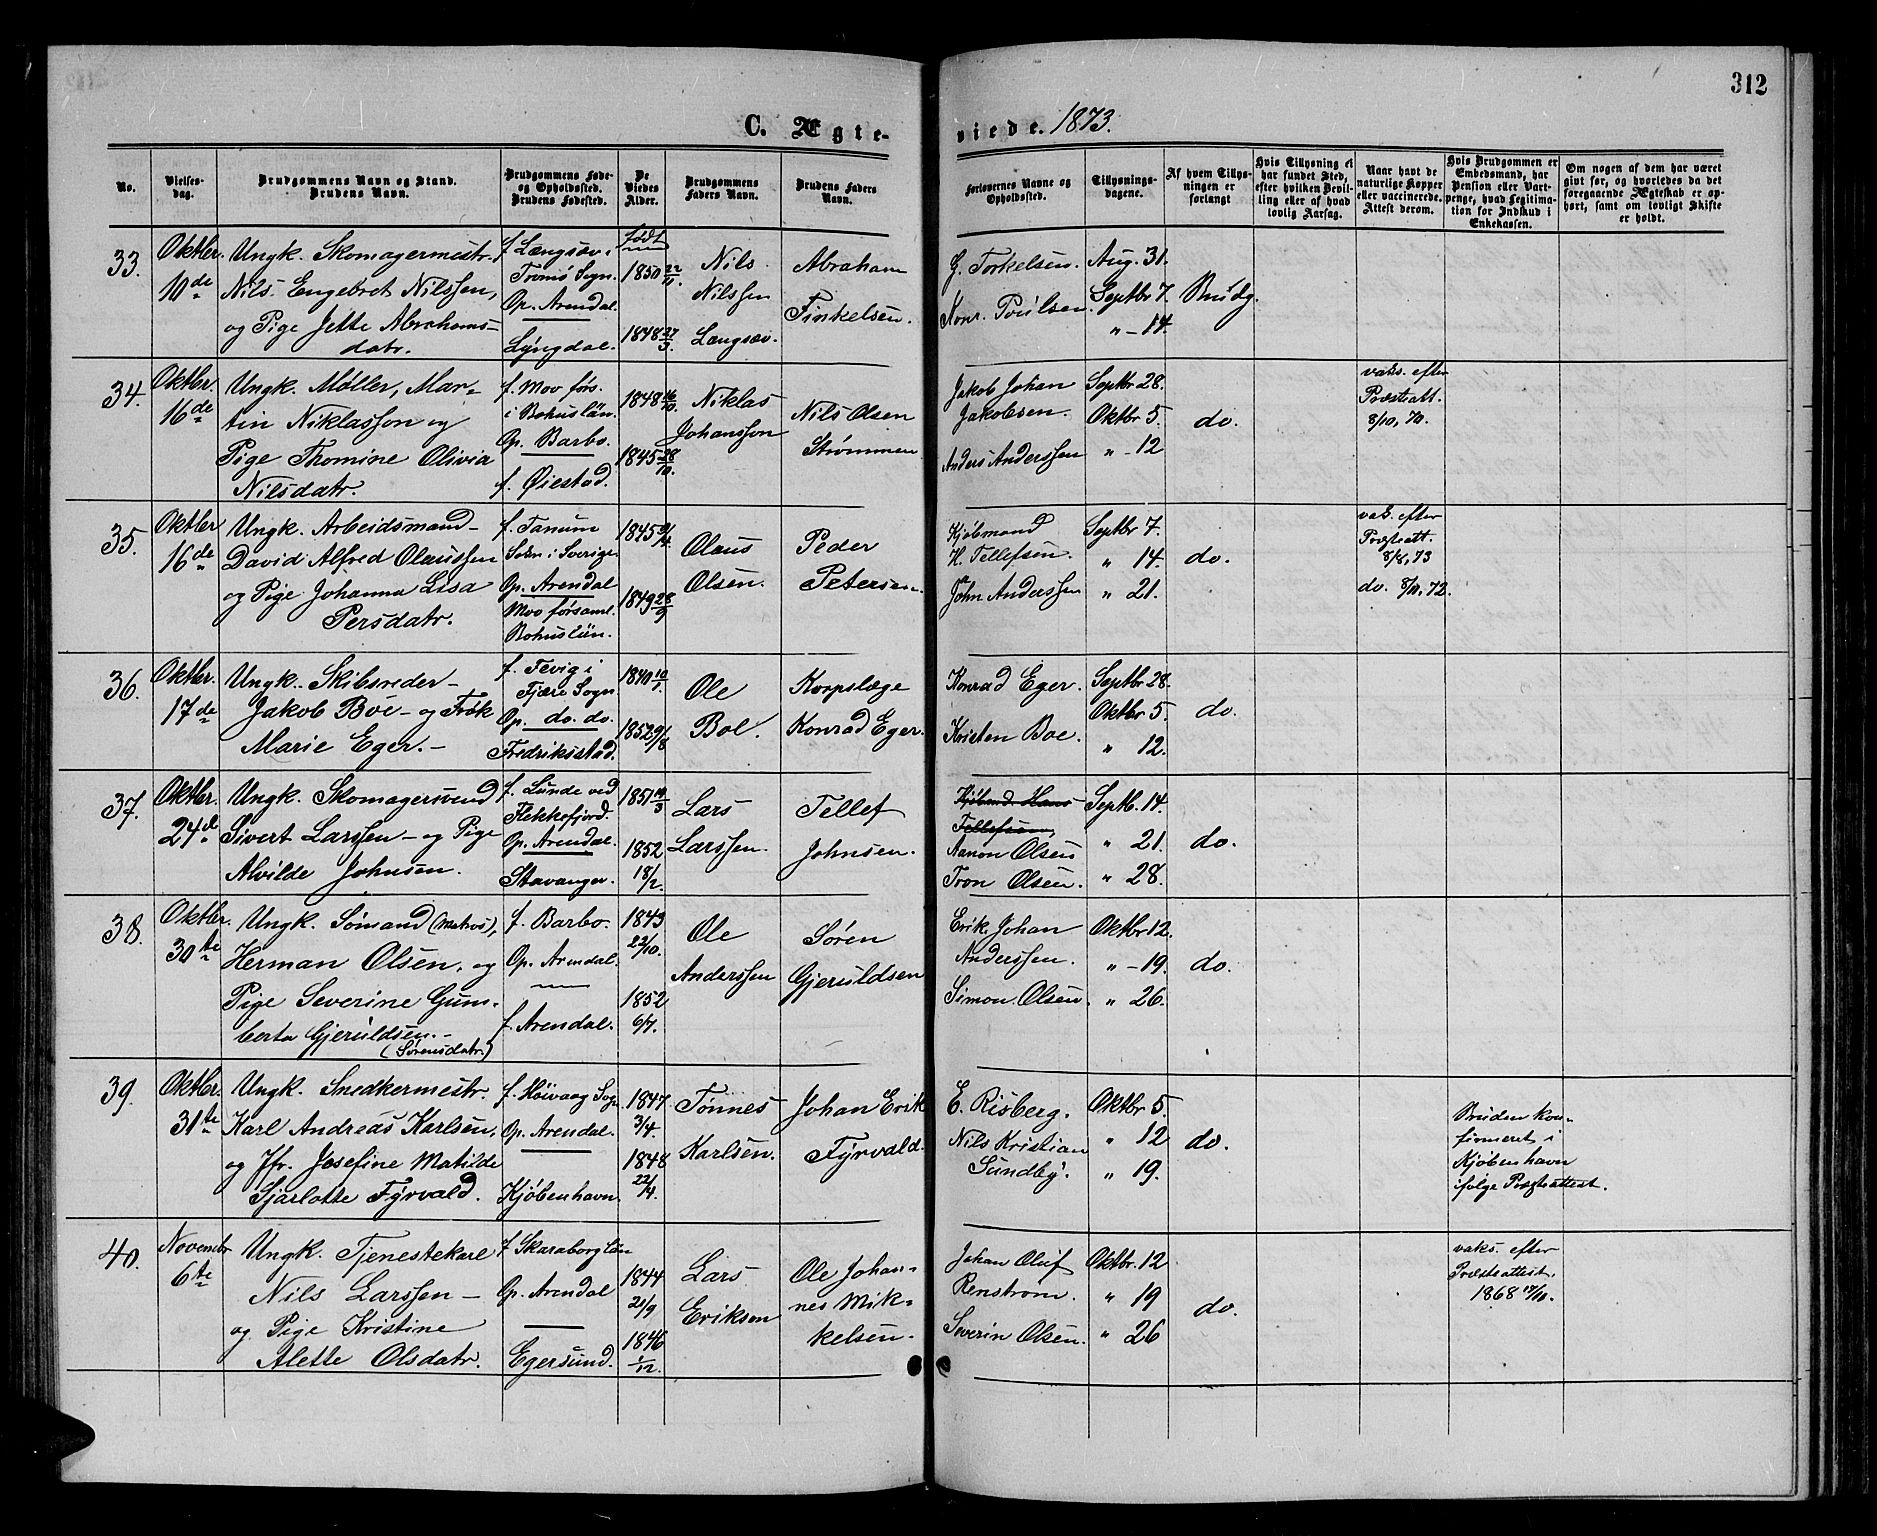 312
C. Ægte-
viede. 1873.
No.
Vielses-
dag.
Brudgommens Navn og Stand.
Brudens Navn.
Brudgommens Føde-
og Opholdssted.
Brudens Fødested.
De
Viedes
Alder.
Brudgommens
Faders Navn.
Brudens Faders
Navn.
Forlovernes Navne og
Opholdssted.
Tillysnings-
dagene.
Af hvem Tillys-
ningen er
forlangt
Hvis Tillysning ei
har fundet Sted,
efter hvilken Bevil-
ling eller af hvad
lovlig Aarsag.
Naar havt de
naturlige Kopper
eller vaccinerede.
Attest derom.
Hvis Brudgommen er
Embedsmand, har
Pension eller Vart-
penge, hvad Legitima-
tion for Indskud i
Enkekassen.
Om nogen af dem har været
gift før, og hvorledes da det
foregaaende Ægteskab er op-
hørt, samt om lovligt Skifte
er holdt.
33.
Oktbr.
10de
Ungk. Skomagermestr.
Nils Engebret Nilssen,
og Pige Jette Abrahams-
datr.
f. Længsæv i
Tromø Sogn.
Op. Arendal.
Lyngdal.
født
1850 22/11.
1848 27/3.
Nils
Nilssen
Længsæv.
Abraham
Finkelsen.
G. Torkelsen.
Konr. Poulsen.
Aug. 31.
Septbr 7.
" - 14.
Brudg.
34.
Oktbr.
16de
Ungk. Møller, Mar-
tin Niklasson og
Pige Thomine Olivia
Nilsdatr.
f. Mov førs.
i Bohuslän.
Op. Barbo.
f. Øiestad.
1848 16/10.
1845 28/10.
Niklas
Johansson
Nils Olsen
Strømmen
Jakob Johan
Jakobsen.
Anders Anderssen
Septbr 28.
Oktbr 5.
" - 12
do.
vaks. efter
Præsteatt.
8/10, 70.
35.
Oktbr
16de
Ungk. Arbeidsmand
David Alfred Olaussen
og Pige Johanna Lisa
Persdatr.
f. Tanum
Sokn i Sverige
Op. Arendal
Mov førsaml.
Bohuslän.
1845 9/4.
1849 28/9
Olaus
Olsen.
Peder
Petersen.
Kjøbmand
H. Tellefsen.
John Anderssen
Septbr 7.
" 14.
" 21.
do.
vak. efter
Præsteatt.
8/8, 73
do. 8/11, 72.
36.
Oktbr.
17de
Ungk. Skibsreder
Jakob Boe - og Frøk
Marie Eger. -
f. Fevig i
Fjære Sogn
Op. do. do.
Fredriksstad.
1840 10/1.
1852 9/8
Ole
Boe.
Korpslæge
Konrad Eger.
Konrad Eger.
Kristen Boe.
Septbr 28.
Oktbr 5.
" 12.
do.
37.
Oktbr.
24de
Ungk. Skomagersvend
Sivert Larssen - og Pige
Alvilde Johnsen.
f. Lunde ved
Flekkefjord.
Op. Arendal.
Stavanger.
1851 19/3
1852
18/2.
Lars
Larssen.
Tellef
Johnsen.
Kjøbmd. Hans
Tellefsen,
Aanon Olsen
Tron Olsen.
Septb. 14.
" 21.
" 28.
do.
38.
Oktbr.
30te
Ungk. Sømand (Matros),
Herman Olsen, og
Pige Severine Gum-
berta Gjeruldsen. -
(Sørensdatr)
f. Barbo.
Op. Arendal.
f. Arendal.
1843
22/10.
1852
6/7.
Ole
Anderssen
Sören
Gjeruldsen
Erik Johan
Anderssen.
Simon Olsen.
Oktbr 12.
" - 19.
" 26.
do.
39.
Oktbr.
31te
Ungk. Snedkermestr.
Karl Andreas Karlsen,
og Jfr. Josefine Matilde
Sjarlotte Fyrvald.
f. Høivaag Sogn
Op. Arendal.
Kjøbenhavn.
1847
3/4.
1848
22/4.
Tønnes
Karlsen.
Johan Erik
Fyrvald.
E. Risberg.
Nils Kristian
Sundby.
Oktbr 5.
" 12
" 19.
do.
Bruden kon-
firmeret i
Kjøbenhavn
ifølge Præsteattest.
40.
Novembr
6te
Ungk. Tjenestekarl
Nils Larssen -
og Pige Kristine
Alette Olsdatr.
f. Skaraborg län
Op. Arendal
Egersund.
1844
21/9
1846
1/12.
Lars
Eriksen
Ole Johan-
nes Mik-
kelsen.
Johan Oluf
Renstrøm.
Severin Olsen.
Oktbr. 12
" 19
" 26
do.
vaks. efter
Præsteattest.
1868 17/10.